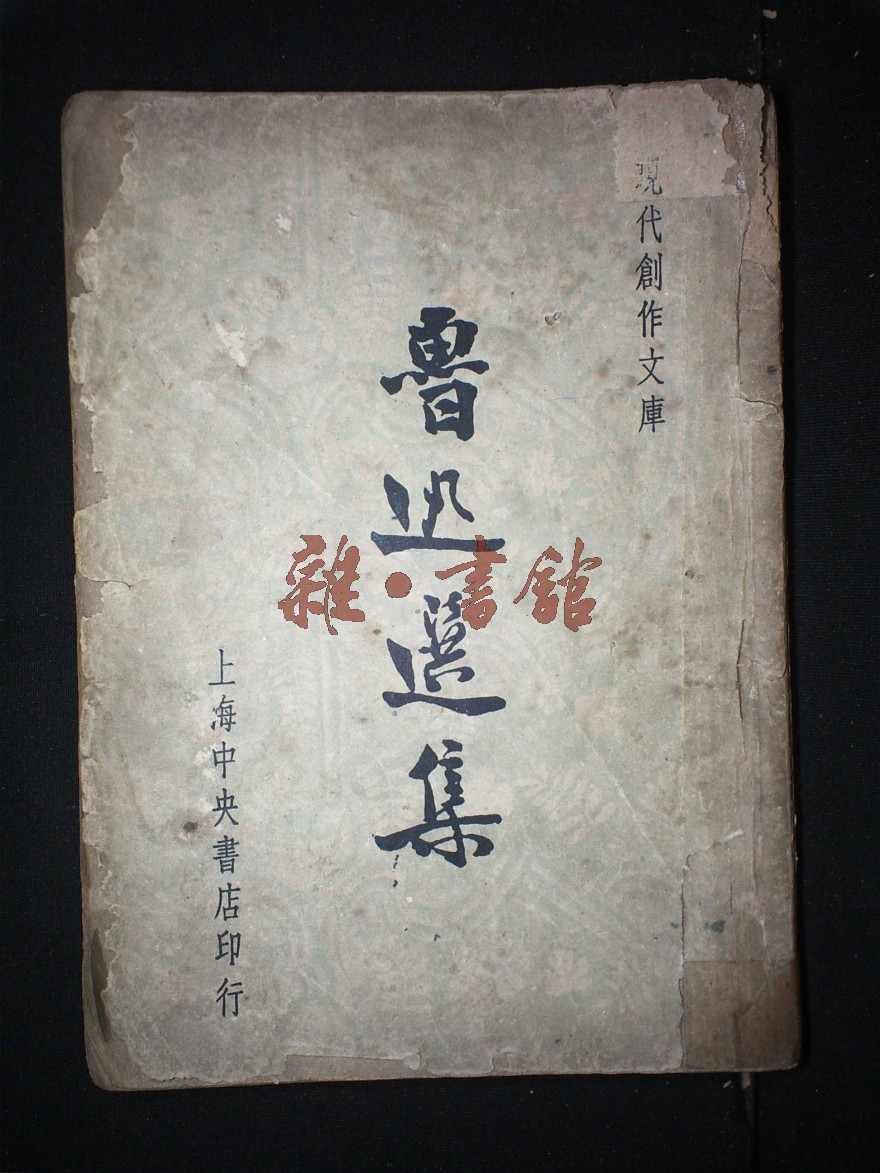 現代創作文庫
魯迅選集
上海中央書店印行
雜·書館